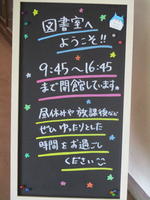 図書室へ
ようこそ!!
9:45～16:45
まで開館しています。
昼休みや放課後など
ぜひゆったりとした
時間をお過ごし
ください